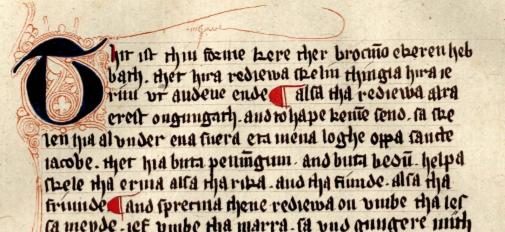 Thit ist thiu forme kere ther brocmēn ekeren heb
bath. thet hira rediewa skelin thingia hira ie
riuu vt and evene ende alsa tha rediewa alra
erest ongungath. and to hape kemē send. sa ske
len hia al vnder ena suera eta mena loghe oppa sancte
iacobe. thet hia buta pellingum. and buta bedū. helpa
skele tha erma alsa tha rika. and tha fiunde. alsa tha
friunde and sprecma thene rediewa on vmbe tha les
sa meyde. ief vmbe tha marra. sa vnd gungere mith